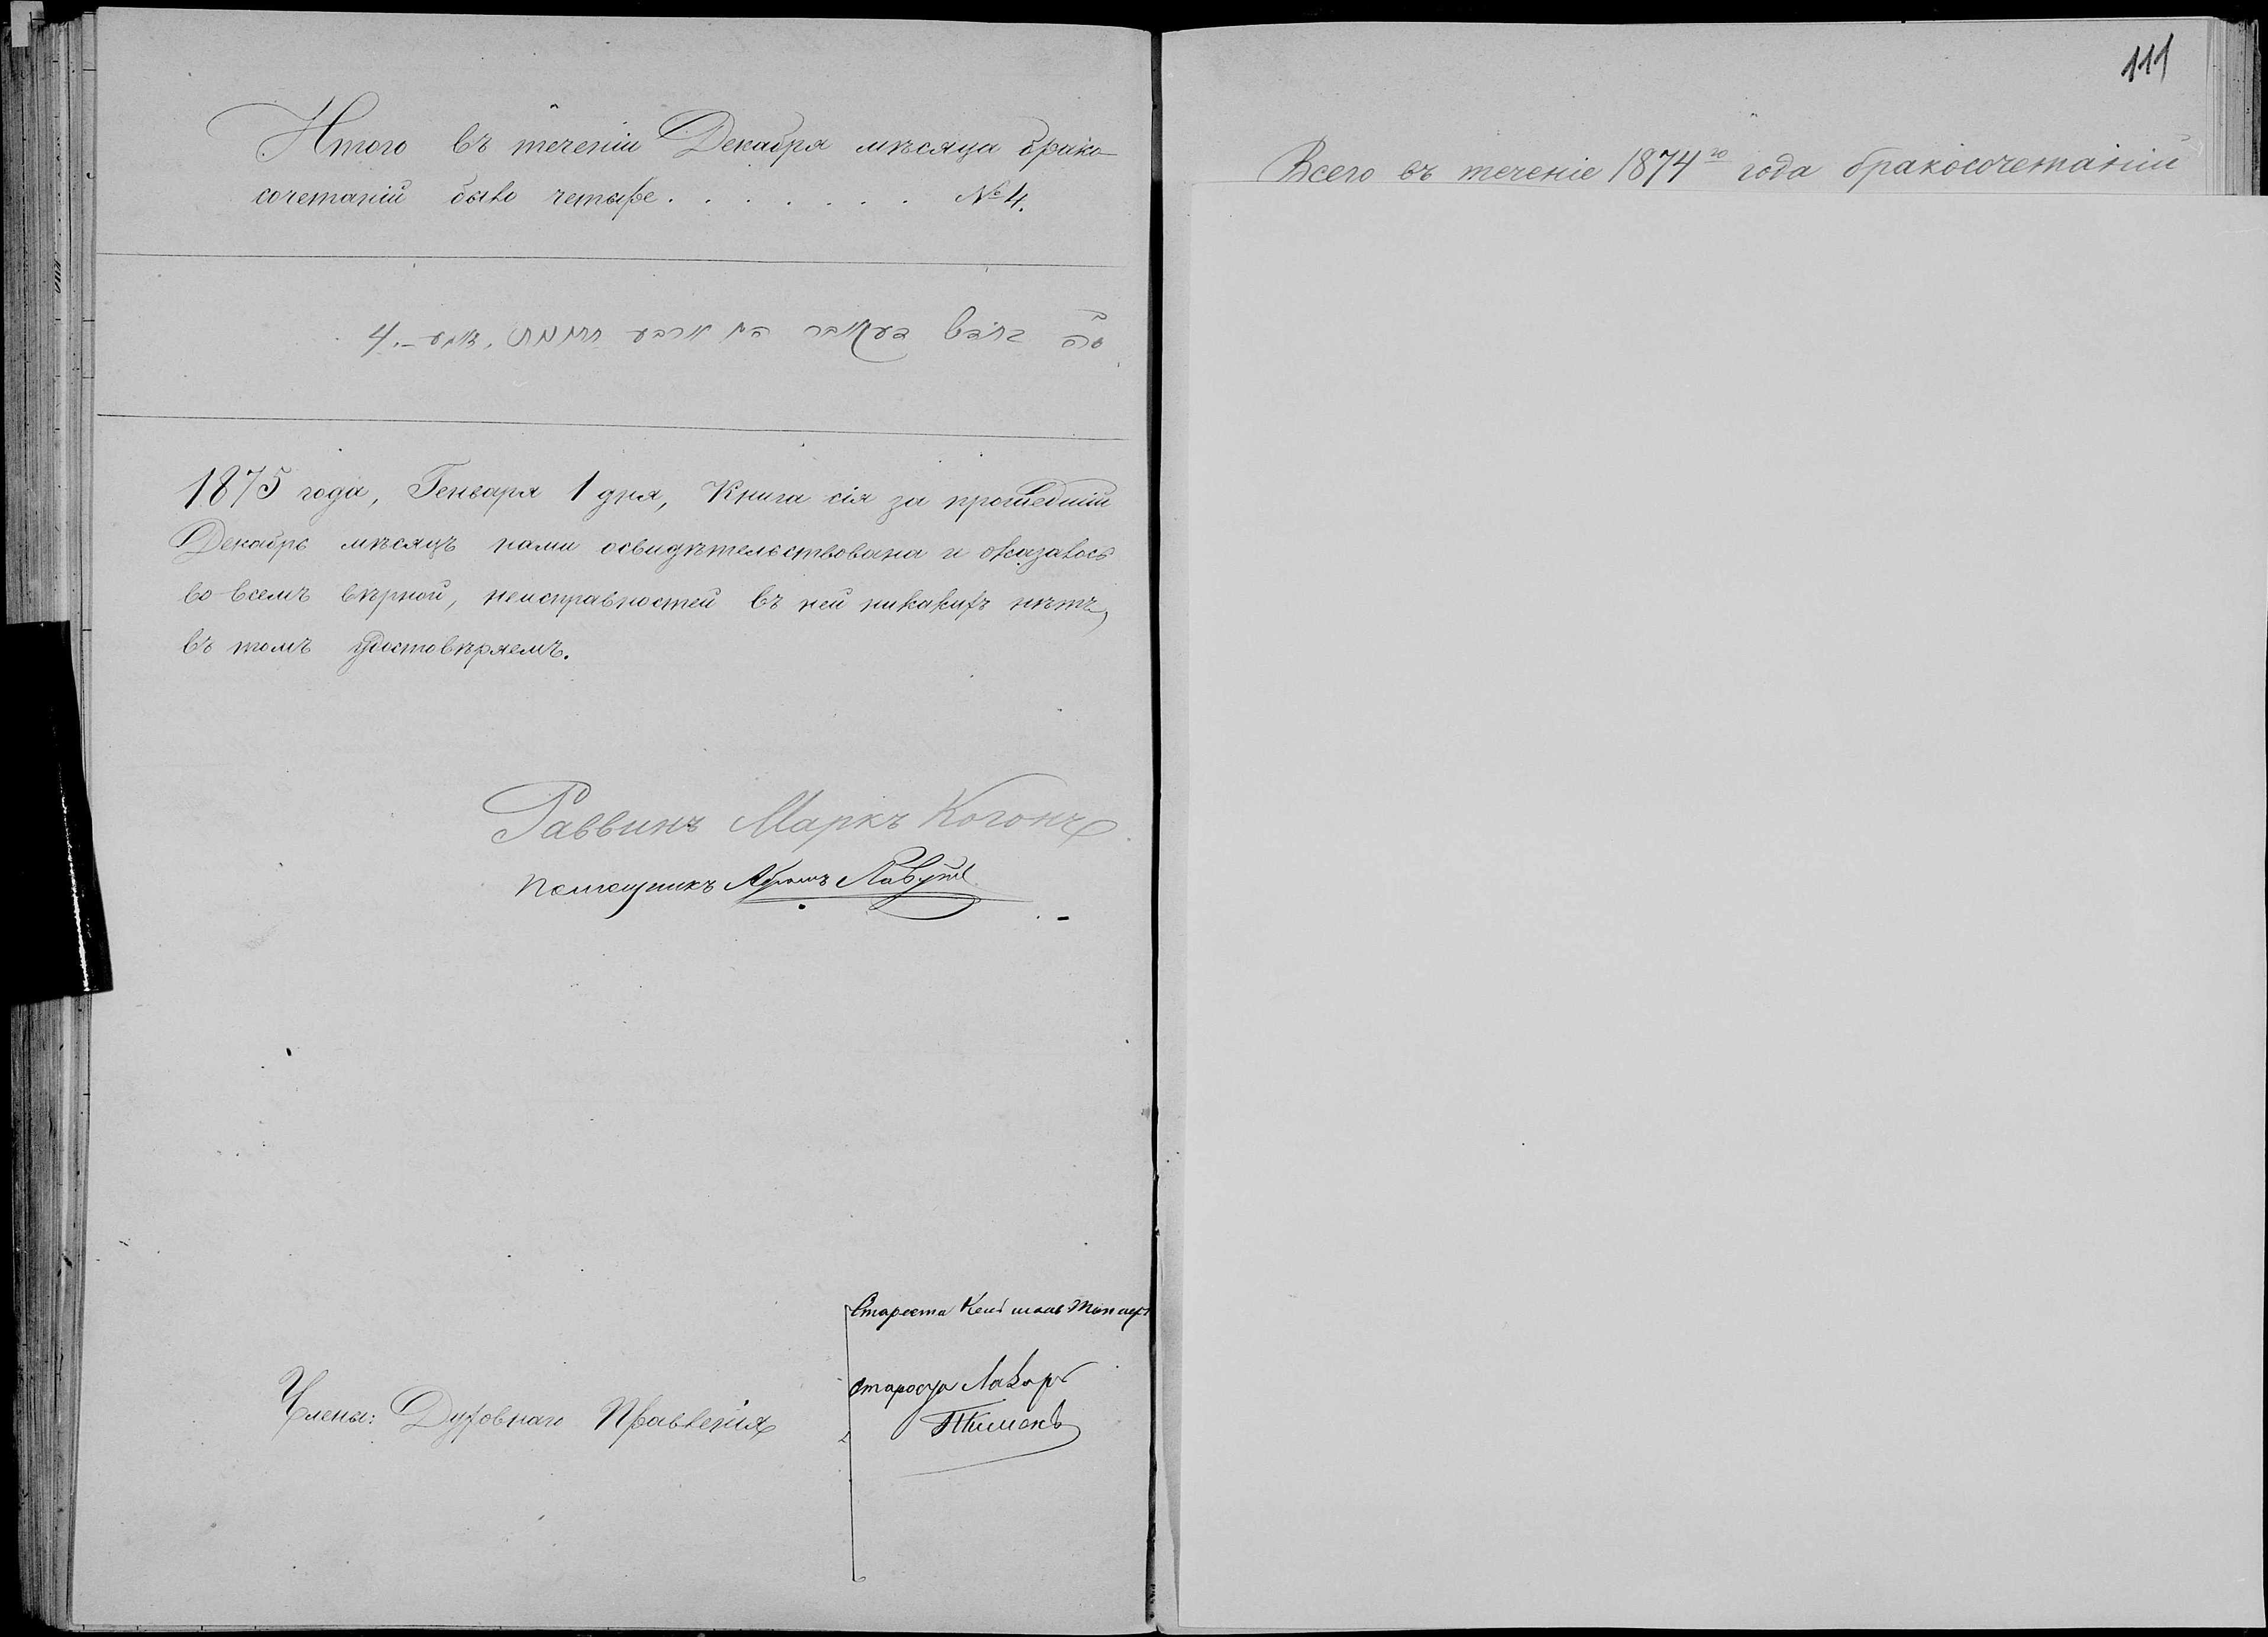 Итого въ теченіи Декабря мѣсяца брако-
сочетаній было четыре . . . . . . . № 4.
ארבע 4.
1875 года, Генваря 1 дня, Книга сія за прошедшій
Декабрь мѣсяцъ нами освидѣтельствована и оказалось
во всемъ вѣрной, неисправностей въ ней никакихъ нѣтъ,
въ томъ удостовѣряемъ.
Раввинъ Маркъ Когонъ
Помощникъ Абрамъ
Члены: Духовнаго Правленія
Староста
староста Лазарь
111
Всего въ теченіе 1874го года бракосочетаній